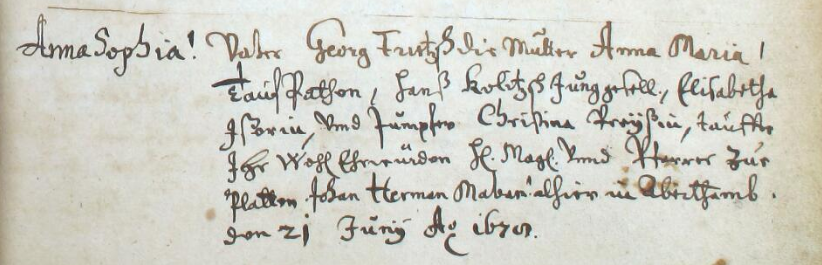 Anna Sophia! Vater Georg Fritzsch die Mutter Anna Maria!
Tauf Pathen, Hanß Kolitzsch Junggesell., Elisabetha
und Jungfer Christina tauffte
Ihr Wohl Ehrwürden H. Mag. Vnnd Pfarrer Zue
Platten Johan Herman alhier in Aberthamb.
den 21 Junij Ao